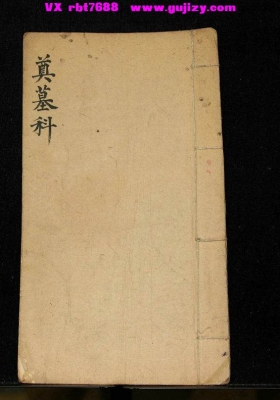 VX rbt7688 www.gujizy.com
奠墓科